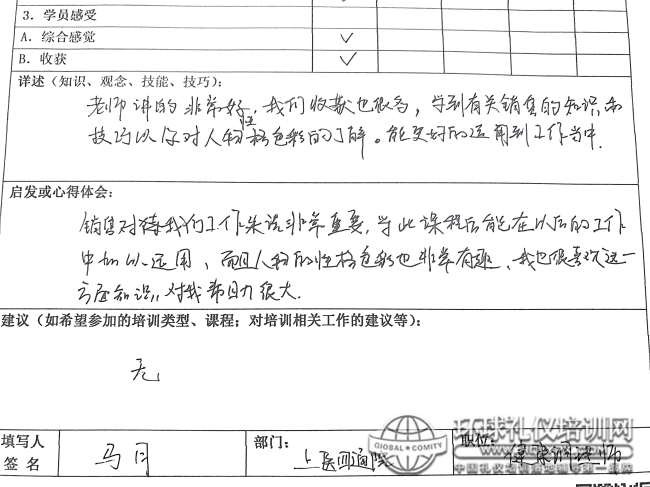 3．学员感受
A．综合感觉 ✓
B．收获 ✓
详述（知识、观念、技能、技巧）：
老师讲的非常好，我们收获也很多，学到有关销售的知识和
技巧以及对人物性格色彩的了解。能更好的运用到工作当中.
启发或心得体会：
销售对待我们工作来说非常重要，学此课程后能在以后的工作
中加以运用，而且人物的性格色彩也非常有趣，我也很喜欢这一
方面知识，对我帮助很大.
建议（如希望参加的培训类型、课程；对培训相关工作的建议等）：
无
填写人 部门： 职位：
签 名 马月 健康调理师
GLOBAL COMITY
环球礼仪培训网